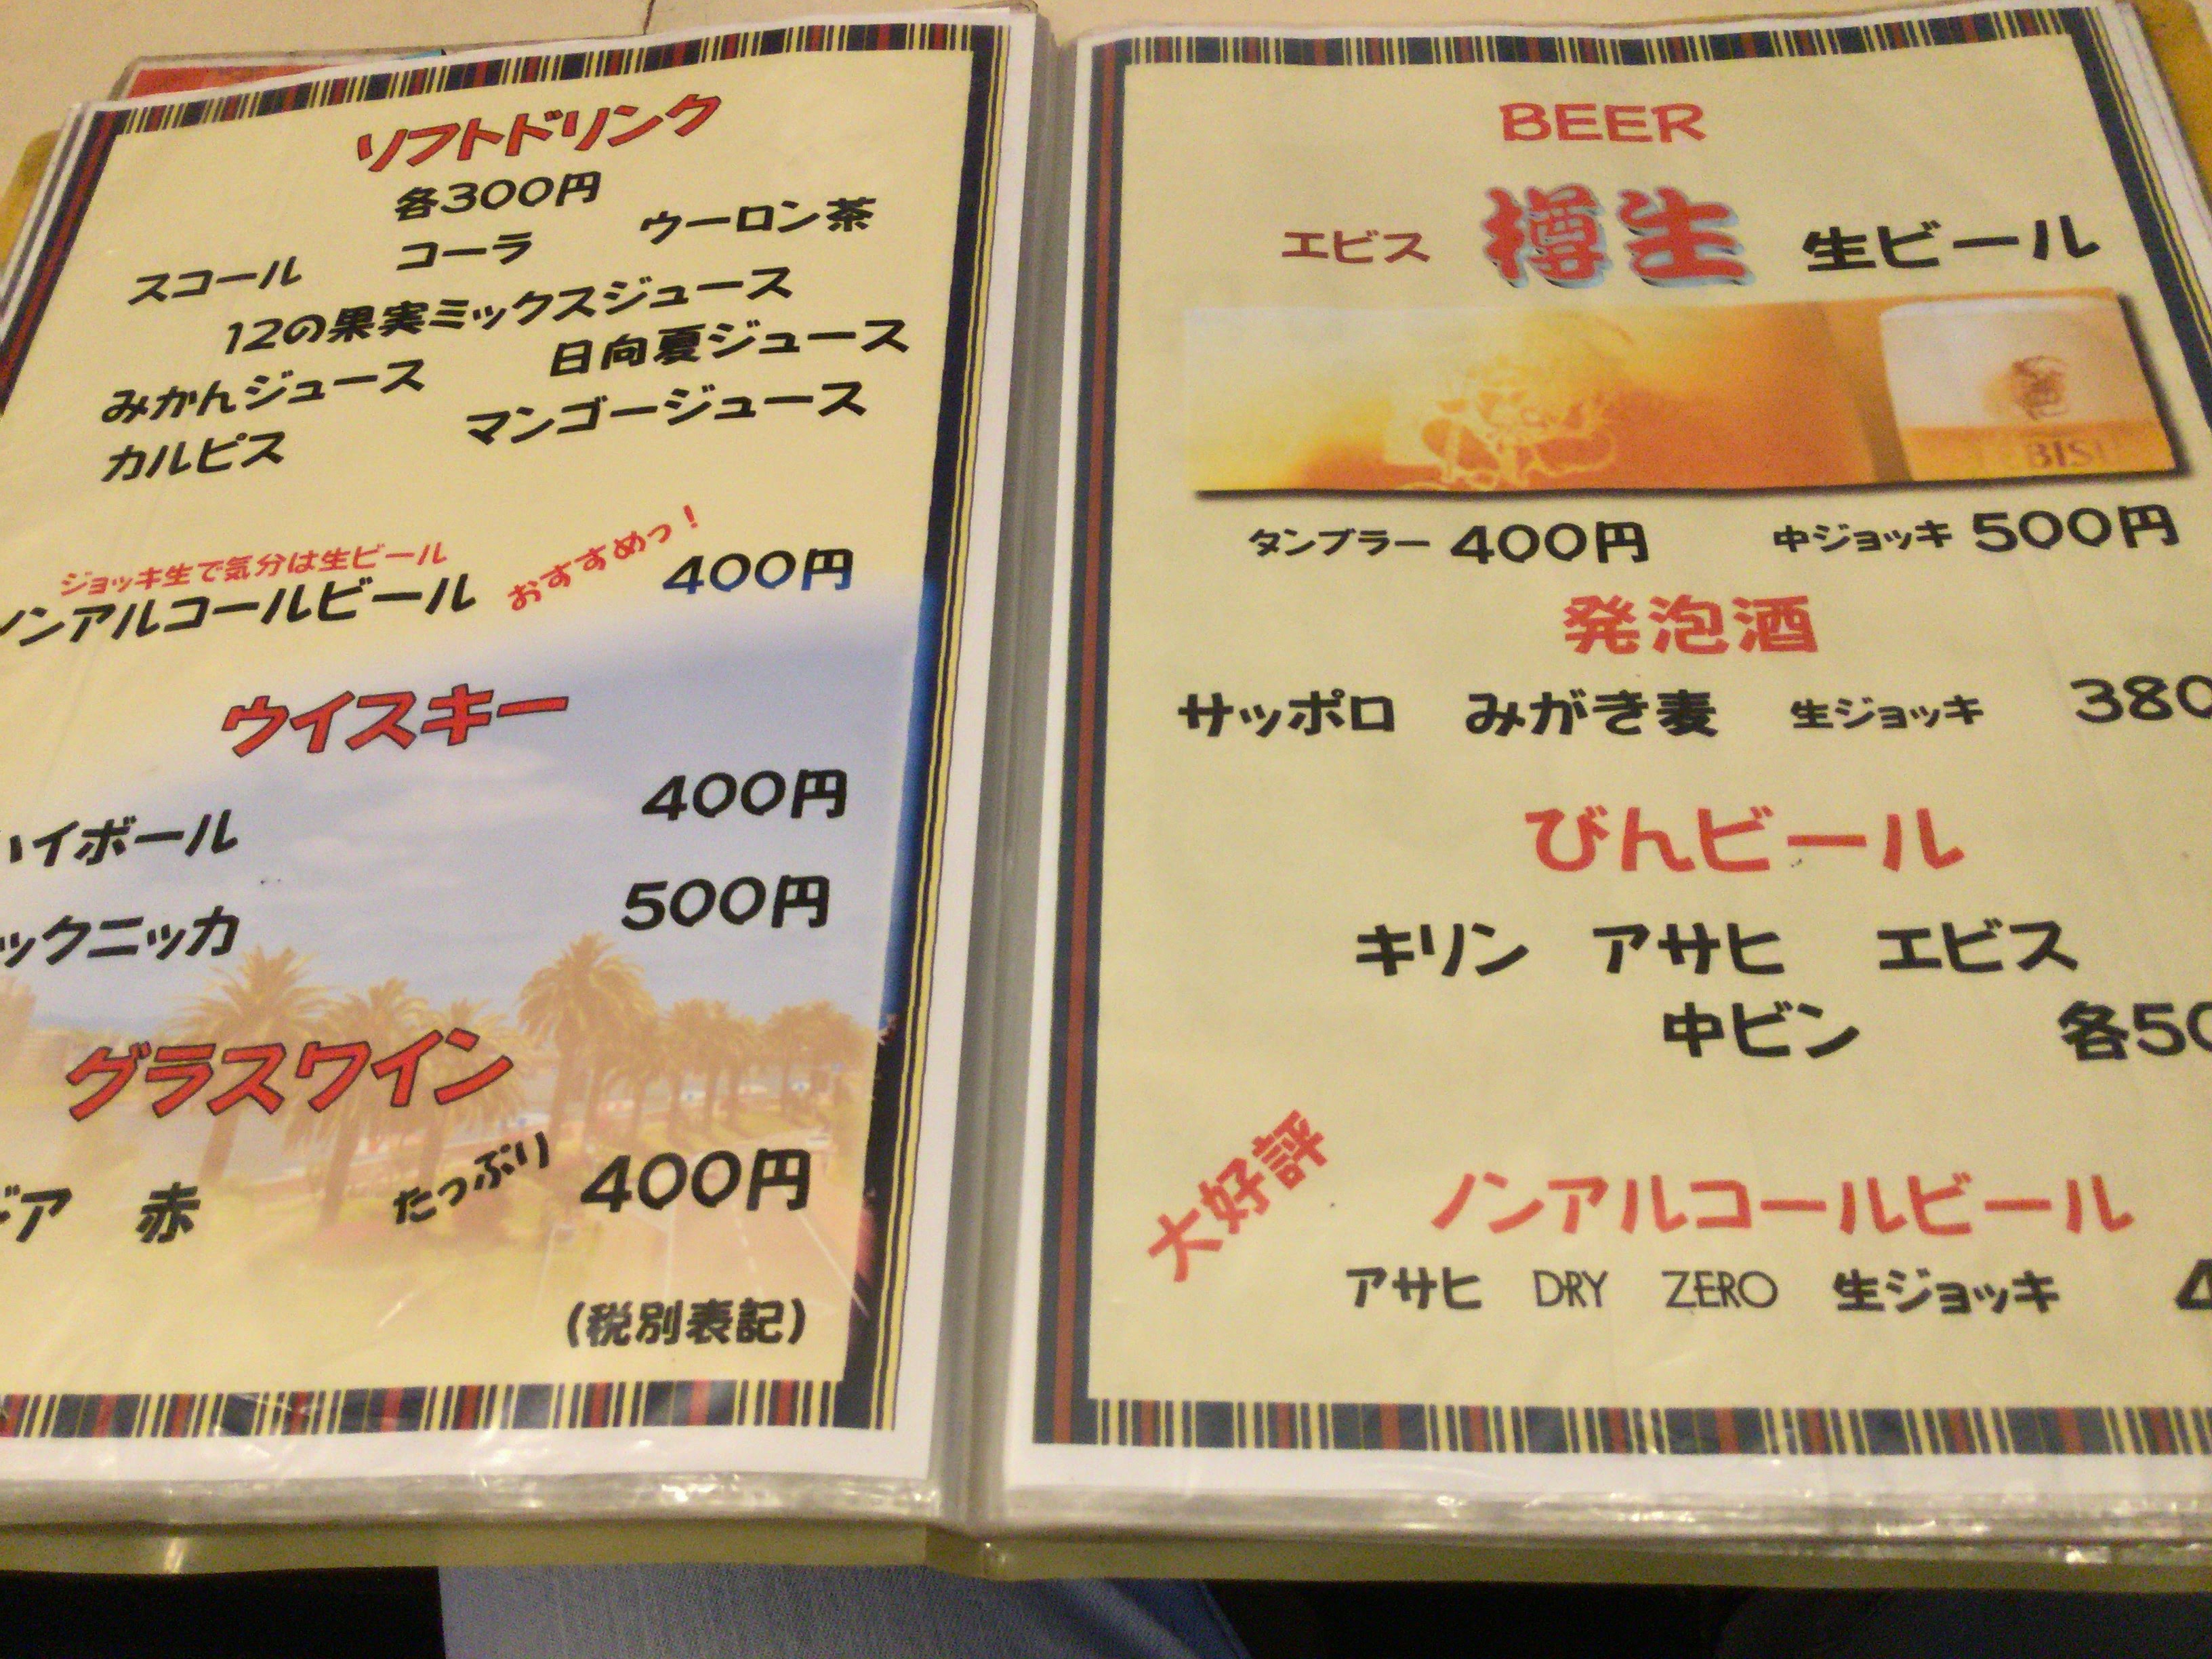 ソフトドリンク
各300円
スコール コーラ ウーロン茶
12の果実ミックスジュース
みかんジュース 日向夏ジュース
カルピス マンゴージュース
ジョッキ生で気分は生ビール
ノンアルコールビール おすすめっ! 400円
ウイスキー
ハイボール 400円
ックニッカ 500円
グラスワイン
ア 赤 たっぷり 400円
(税別表記)
BEER
エビス 樽生 生ビール
BIS
タンブラー 400円 中ジョッキ 500円
発泡酒
サッポロ みがき麦 生ジョッキ 380
びんビール
キリン アサヒ エビス
中ビン 各50
大好評
ノンアルコールビール
アサヒ DRY ZERO 生ジョッキ 4